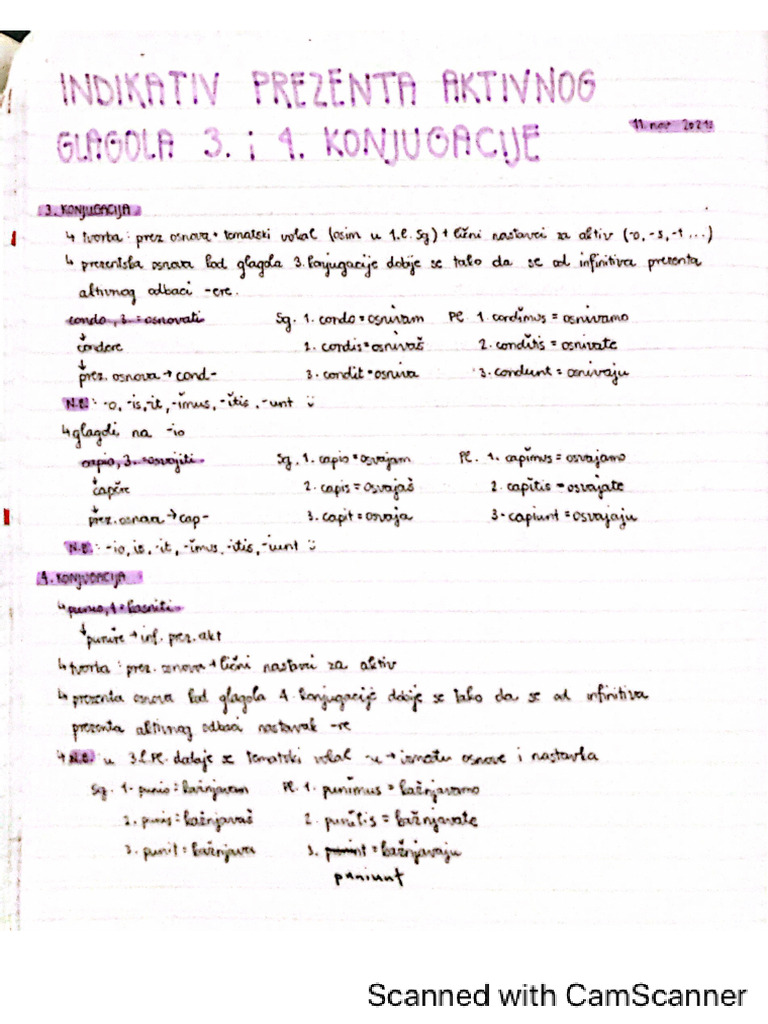 INDIKATIV PREZENTA AKTIVNOG
GLAGOLA 3. i 4. KONJUGACIJE
11. nov 2021.
3. KONJUGACIJA
↳ tvorba: prez osnova + tematski vokal (osim u 1.l. Sg) + lični nastavci za aktiv (-o, -s, -t ...)
↳ prezentska osnova kod glagola 3. konjugacije dobije se tako da se od infinitiva prezenta
aktivnog odbaci -ere.
condo, 3. = osnovati Sg. 1. condo = osnivam Pl. 1. condĭmus = osnivamo
↓ condere 2. condis = osnivaš 2. condĭtis = osnivate
↓ prez. osnova → cond- 3. condit = osniva 3. condunt = osnivaju
N.B.: -o, -is, -it, -ĭmus, -ĭtis, -unt
↳ glagoli na -io
capio, 3. = osvojiti Sg. 1. capio = osvajam Pl. 1. capĭmus = osvajamo
↓ capĕre 2. capis = osvajaš 2. capĭtis = osvajate
↓ prez. osnova → cap- 3. capit = osvaja 3. capiunt = osvajaju
N.B.: -io, is, -it, -ĭmus, -ĭtis, -iunt
4. KONJUGACIJA
↳ punio, 4. = kazniti
↓ punire → inf. prez. akt
↳ tvorba: prez. osnova + lični nastavci za aktiv
↳ prezenta osnova kod glagola 4. konjugacije dobije se tako da se od infinitiva
prezenta aktivnog odbaci nastavak -re
↳ N.B. u 3.l. Pl. dodaje se tematski vokal -u → između osnove i nastavka
Sg. 1. punio = kažnjavam Pl. 1. punīmus = kažnjavamo
2. punis = kažnjavaš 2. punītis = kažnjavate
3. punit = kažnjava 3. punint = kažnjavaju
puniunt
Scanned with CamScanner